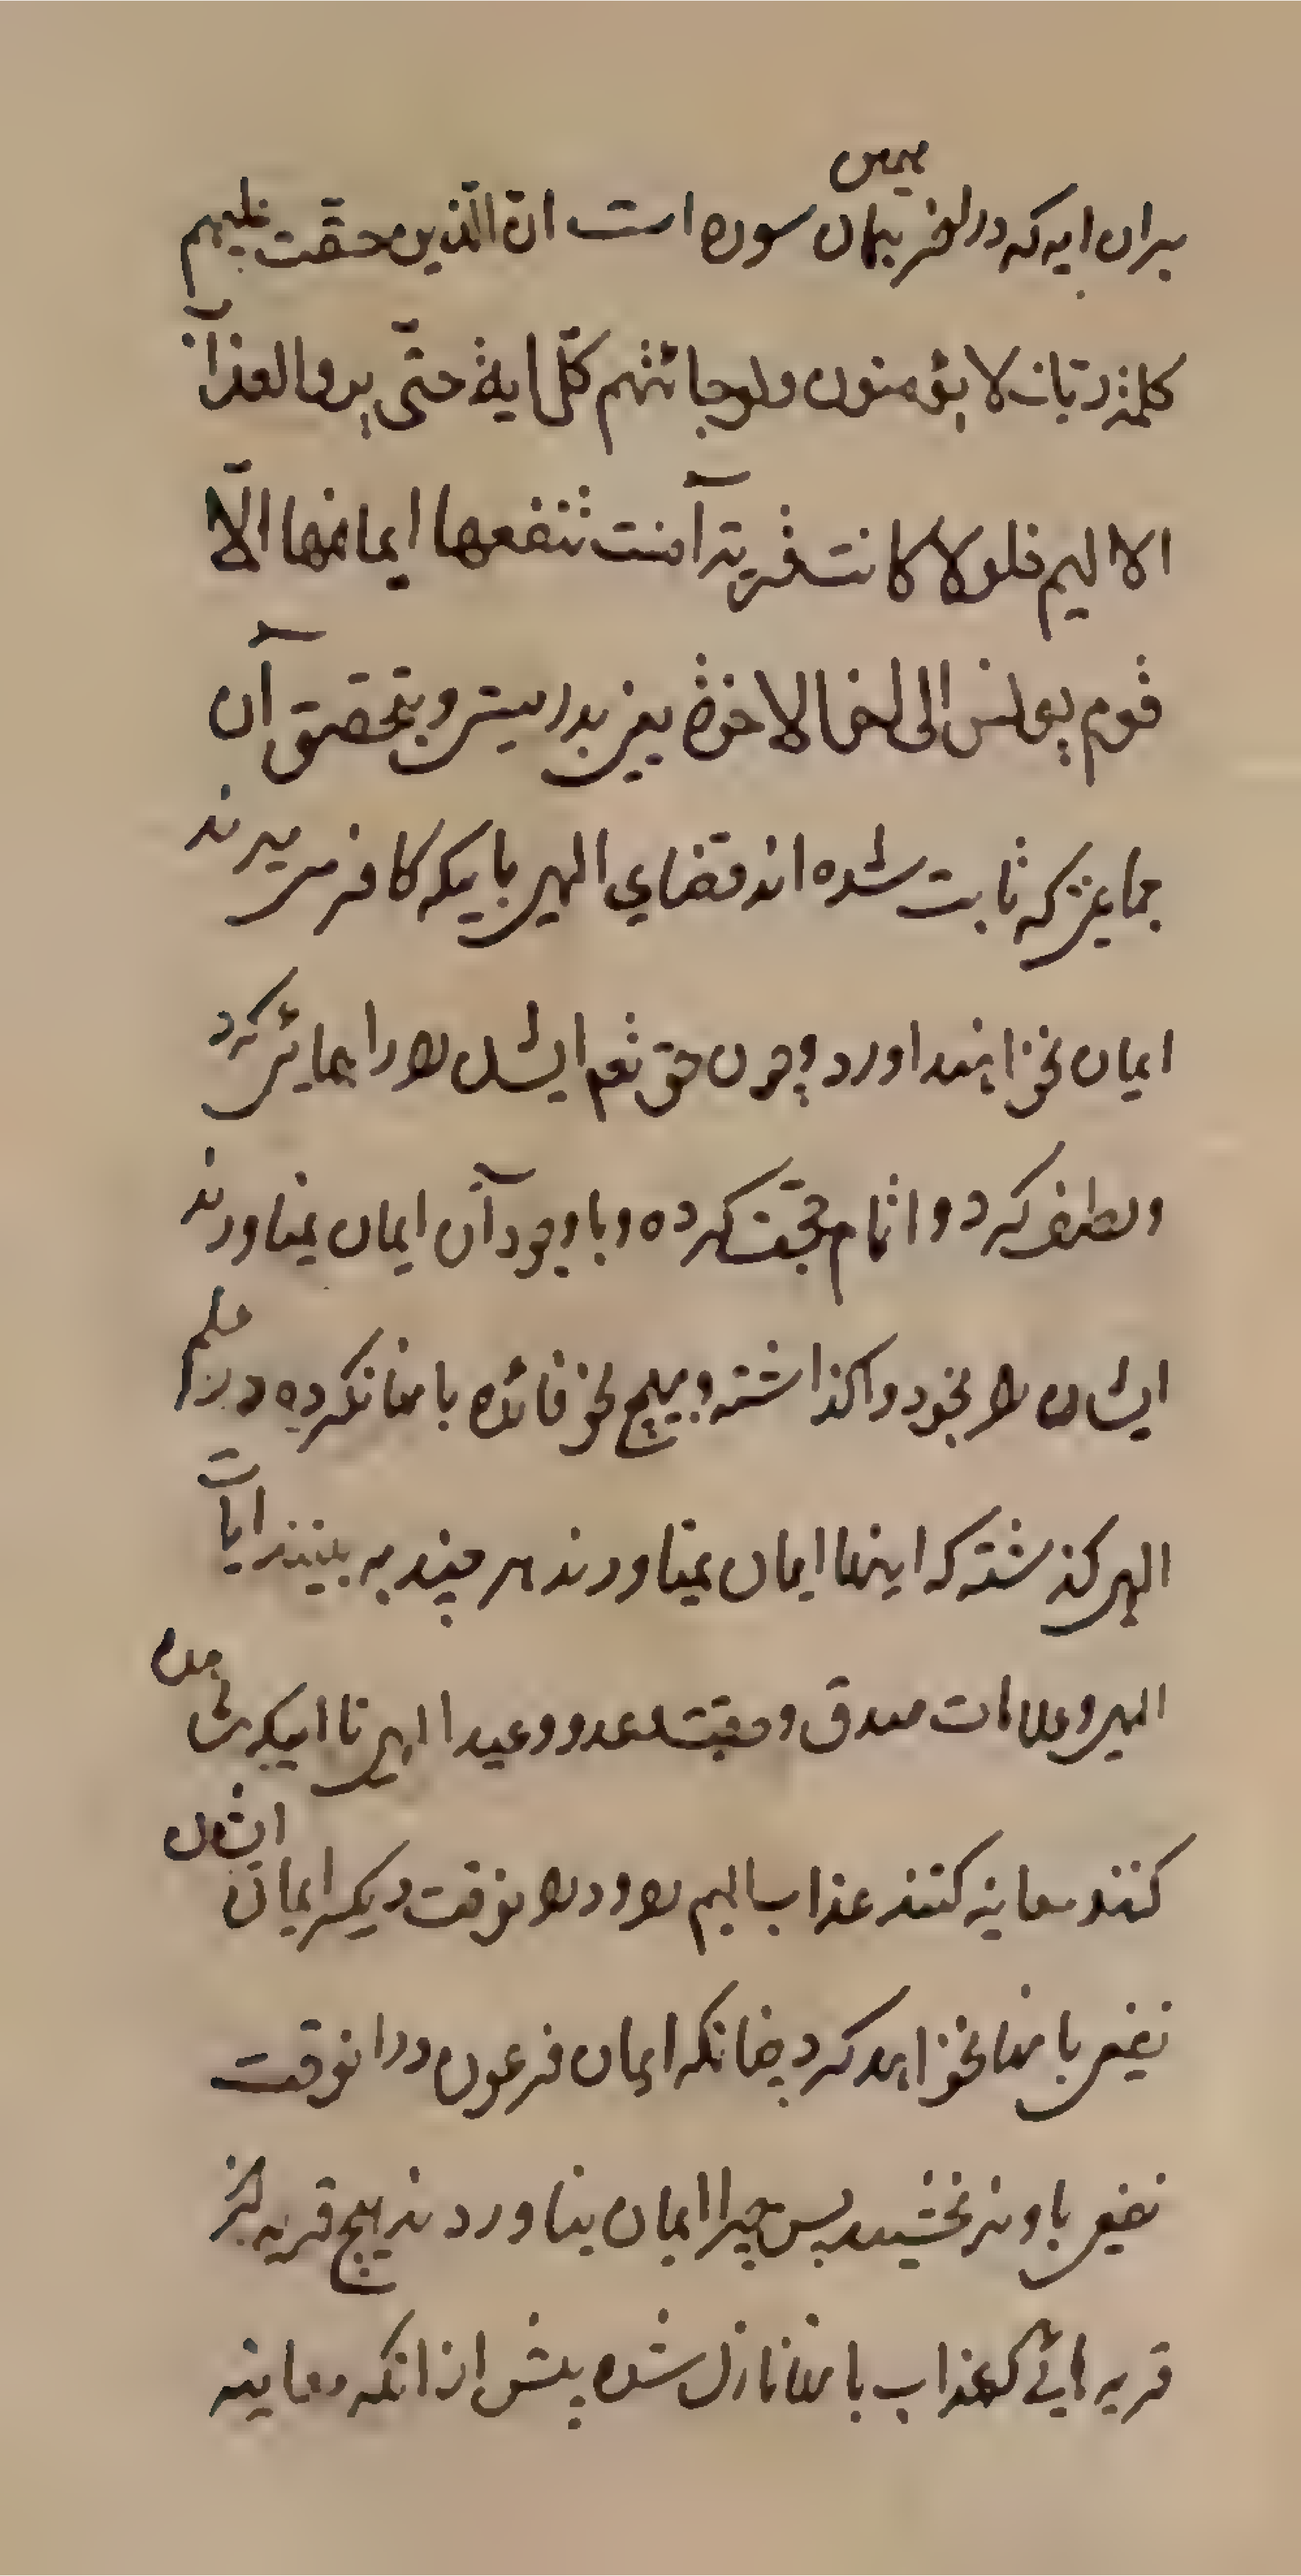 بران ایه که در اخر همان سوره است انّ الّذین حقّت علیهم
کلمة ربّک لا یؤمنون ولو جائتهم کلّ ایة حتّی یروا العذاب
الالیم فلولا کانت قریة آمنت فنفعها ایمانها الّا
قوم یونس الی اخر الایة یعنی بدرستی و بتحقیق آن
جماعتی که ثابت شده اند قضای الهی باینکه کافر میمیرند
ایمان نخواهند اورد و چون حق تعم ایشان را راهنمائی کرد
ولطف کرد و اتمام حجّت کرده و با وجود آن ایمان نمیاورند
ایشان را بخود واگذاشته و هیچ نحو فائده بانها نکرده در علم
الهی گذشته که اینها ایمان نمیاورند هر چند به بینند ایات
الهی و علامات صدق و حقیت وعد و وعید الهی تا اینکه مشاهده
کنند معاینه کنند عذاب الیم را و در انوقت دیگر ایمان ایشان
نفعی بانها نخواهد کرد چنانکه ایمان فرعون در انوقت
نفعی باو نه بخشید پس چرا ایمان نیاوردند هیچ قریه از
قریه هائی که عذاب بانها نازل شده پیش از انکه معاینه